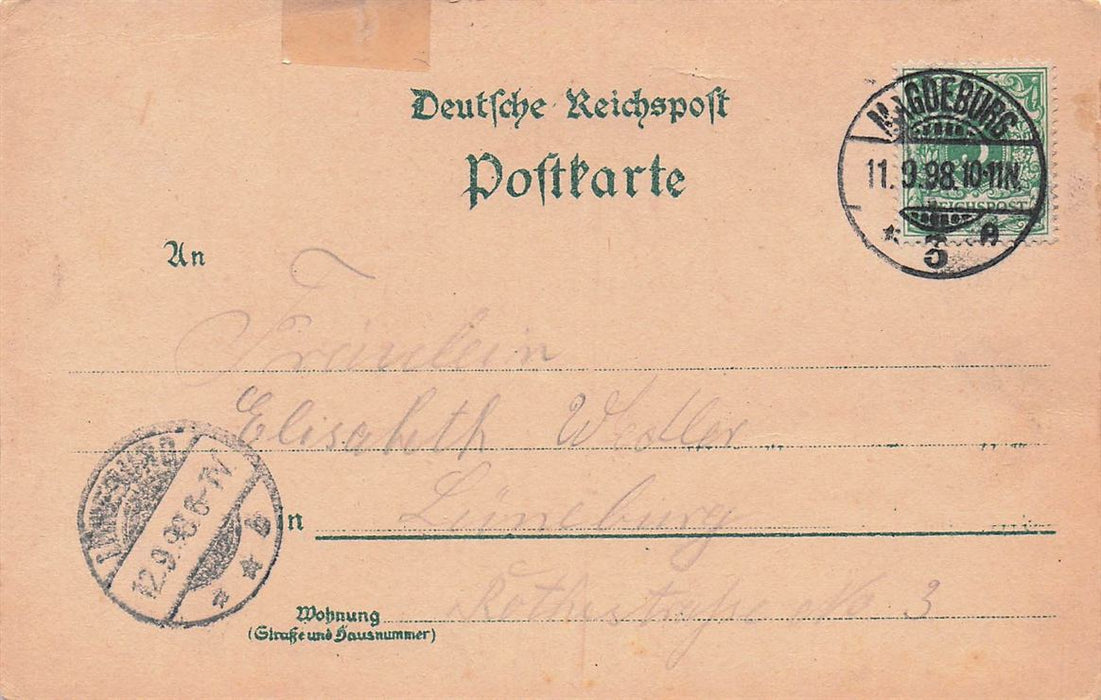 Deutsche Reichspost
Postkarte
MAGDEBURG
11.9.98.10-11N.
* 5 A
REICHSPOST
An
Fräulein
Elisabeth Wedler
LÜNEBURG
12.9.98.6-7V
* * b
In Lüneburg
Wohnung
(Straße und Hausnummer)
Rothestraße No 3